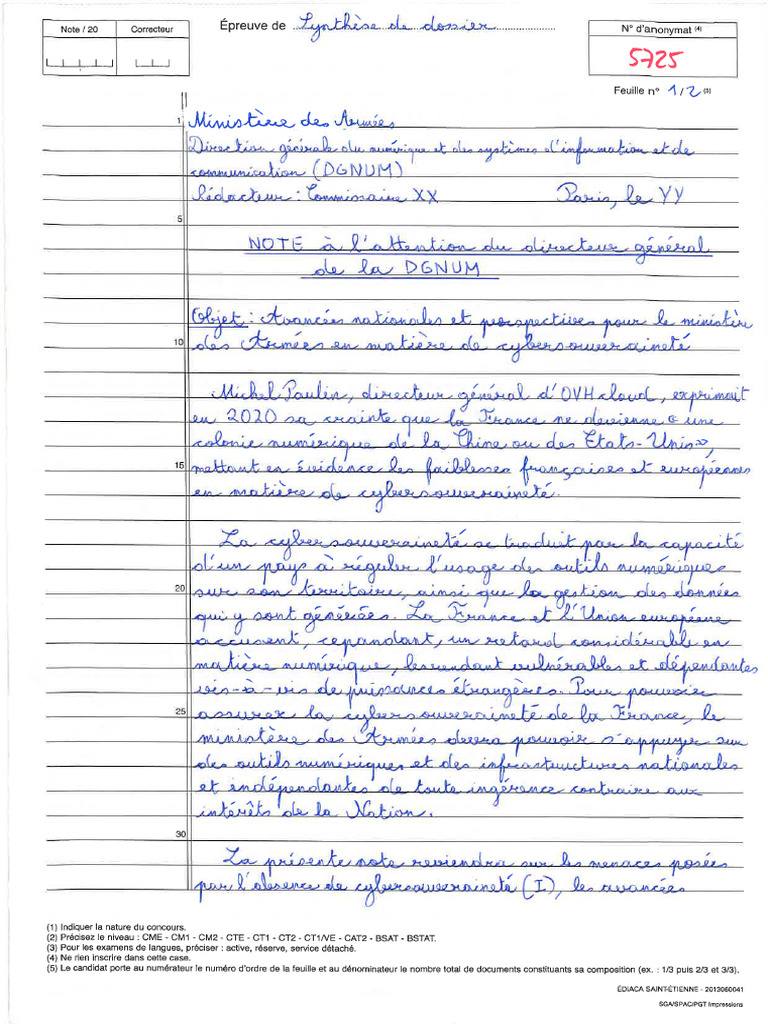 Note / 20
Correcteur
Épreuve de Synthèse de dossier
N° d'anonymat (4)
5725
Feuille n° 1/2 (3)
1
Ministère des Armées
Direction générale du numérique et des systèmes d'information et de
communication (DGNUM)
Rédacteur : Commissaire XX Paris, le YY
5
NOTE à l'attention du directeur général
de la DGNUM
Objet : Avancées nationales et perspectives pour le ministère
10 des Armées en matière de cybersouveraineté
Michel Paulin, directeur général d'OVHcloud, exprimait
en 2020 sa crainte que la France ne devienne « une
colonie numérique de la Chine ou des Etats-Unis »,
15 mettant en évidence les faiblesses françaises et européennes
en matière de cybersouveraineté.
La cybersouveraineté se traduit par la capacité
d'un pays à réguler l'usage des outils numériques
20 sur son territoire, ainsi que la gestion des données
qui y sont générées. La France et l'Union européene
accusent, cependant, un retard considérable en
matière numérique, les rendant vulnérables et dépendantes
vis-à-vis de puissances étrangères. Pour pouvoir
25 assurer la cybersouveraineté de la France, le
ministère des Armées devra pouvoir s'appuyer sur
des outils numériques et des infrastructures nationales
et indépendantes de toute ingérence contraire aux
intérêts de la Nation.
30
La présente note reviendra sur les menaces posées
par l'absence de cybersouveraineté (I), les avancées
(1) Indiquer la nature du concours.
(2) Précisez le niveau : CME - CM1 - CM2 - CTE - CT1 - CT2 - CT1/VE - CAT2 - BSAT - BSTAT.
(3) Pour les examens de langues, préciser : active, réserve, service détaché.
(4) Ne rien inscrire dans cette case.
(5) Le candidat porte au numérateur le numéro d'ordre de la feuille et au dénominateur le nombre total de documents constituants sa composition (ex. : 1/3 puis 2/3 et 3/3).
ÉDIACA SAINT-ÉTIENNE - 2013060041
SGA/SPAC/PGT Impressions